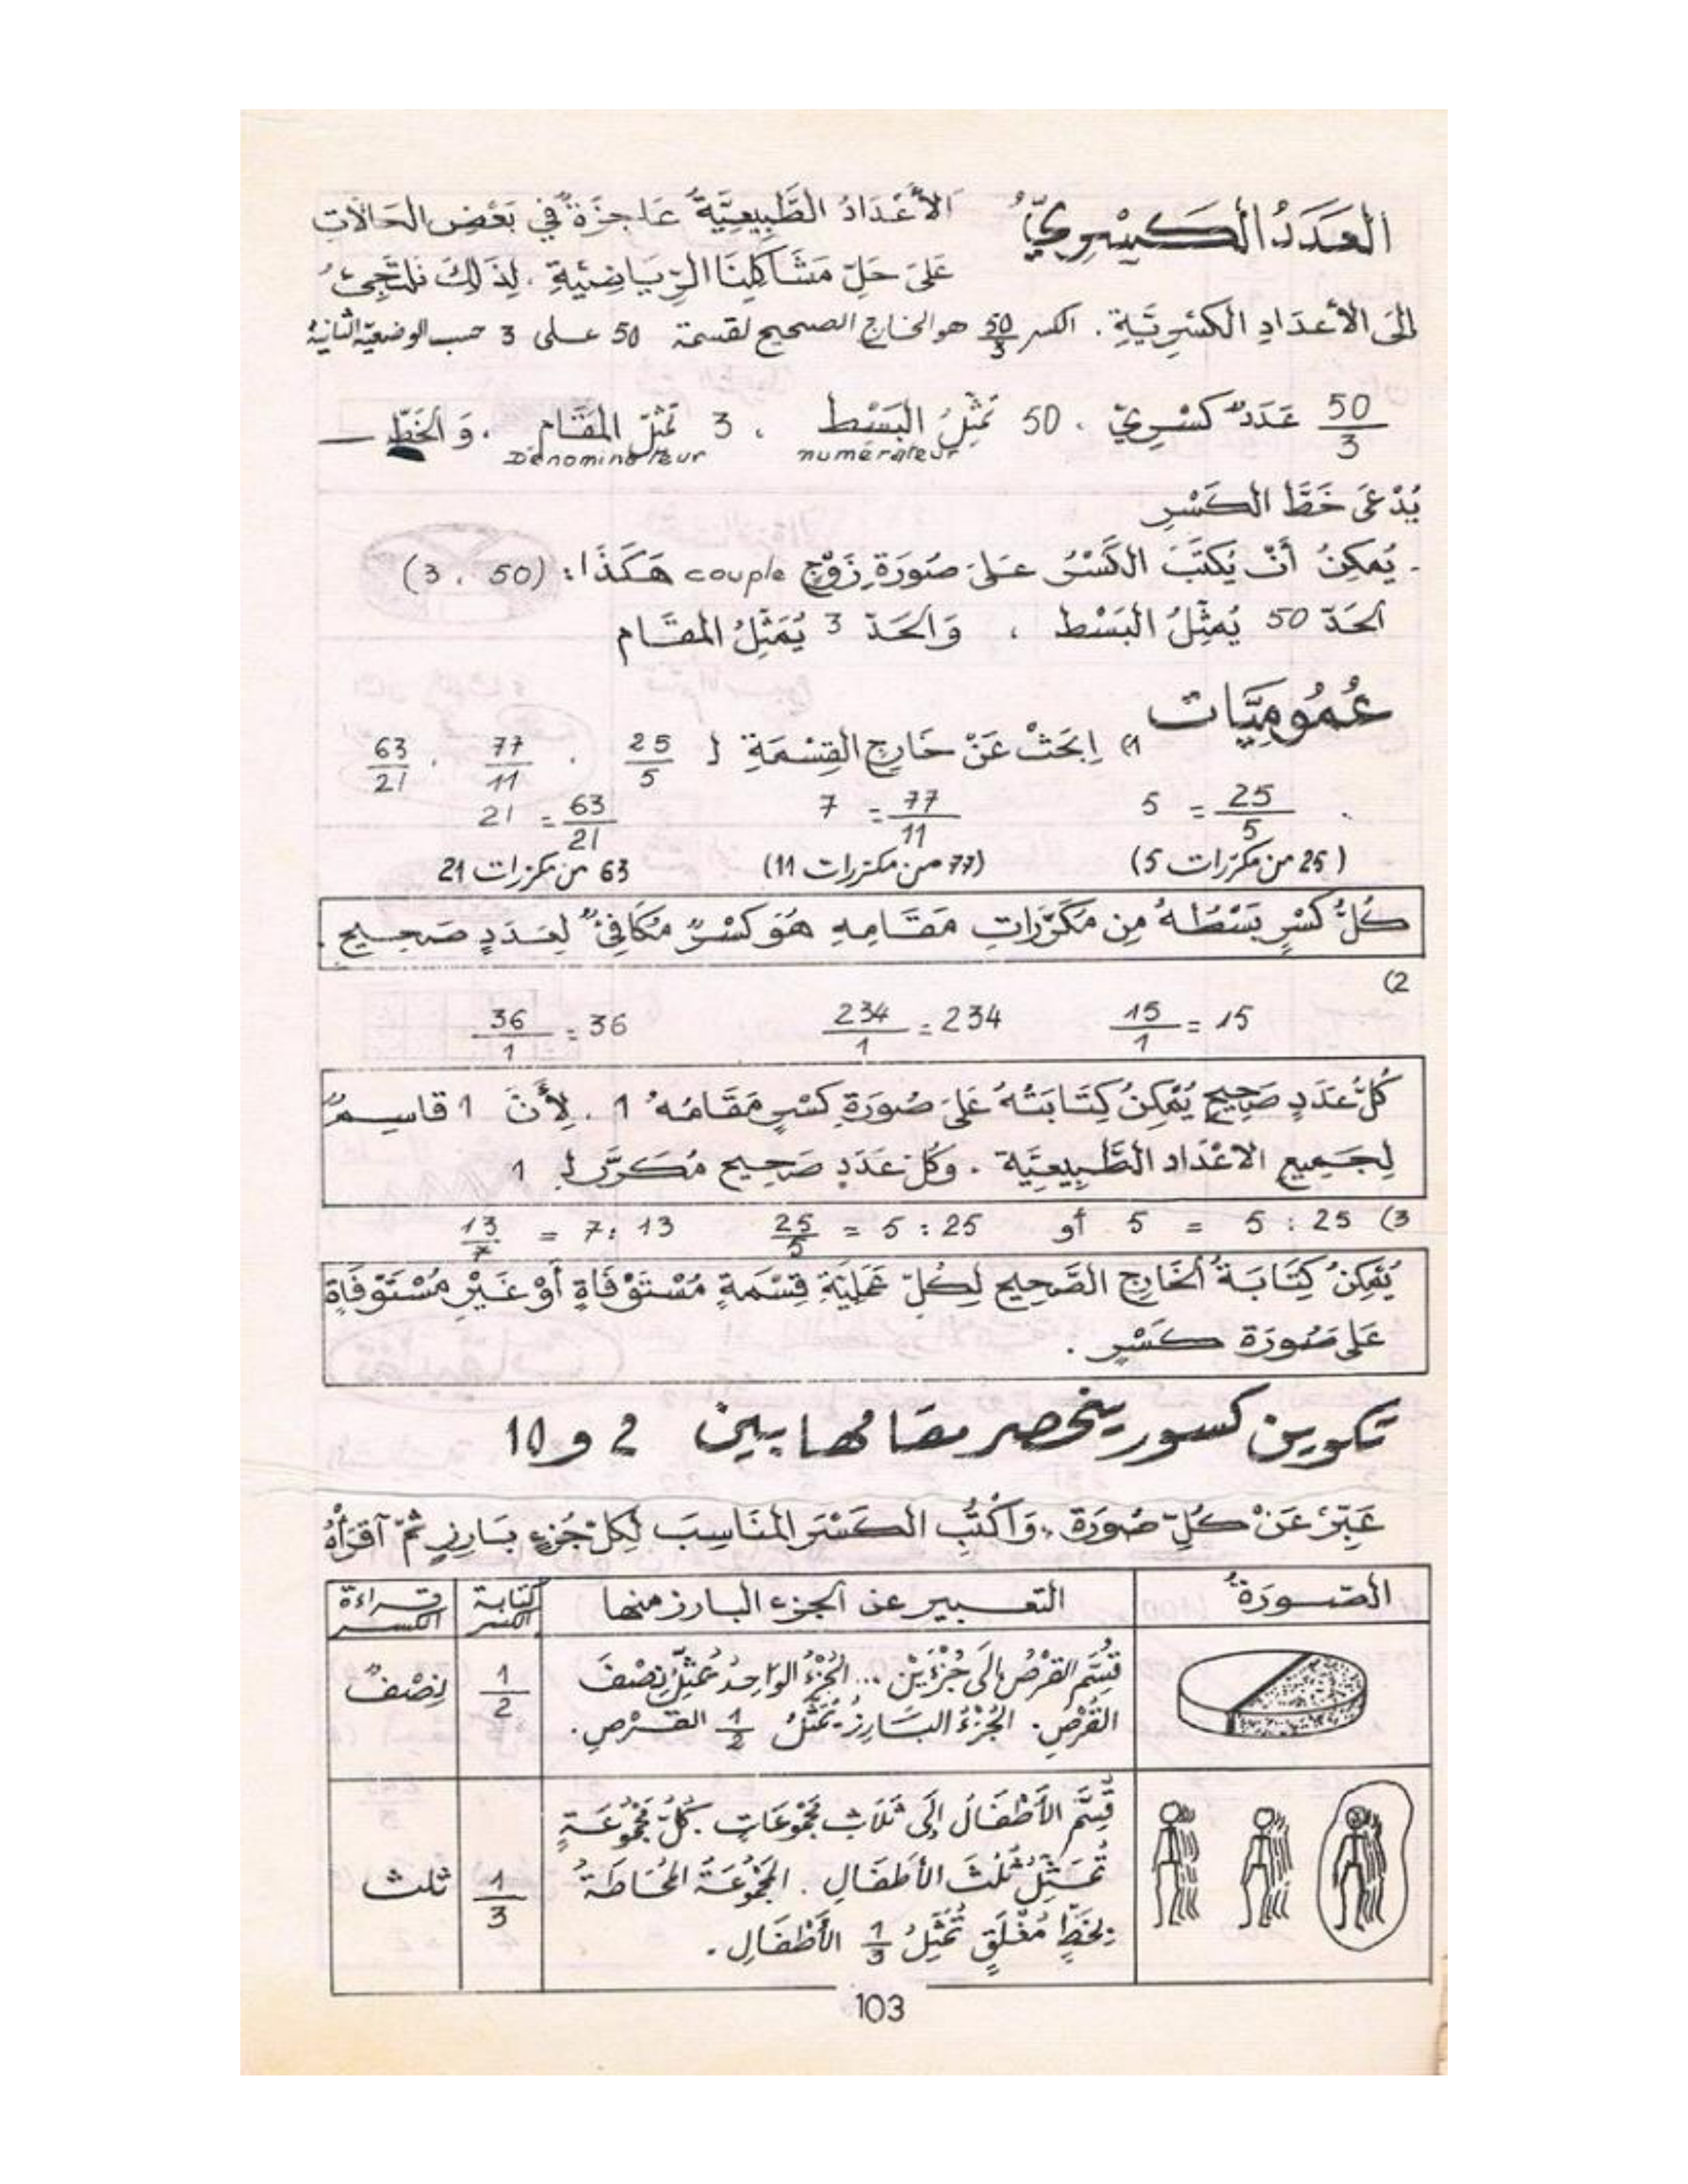 العَدَدُ الكَسْرِيُّ
الأَعْدَادُ الطَّبِيعِيَّةُ عَاجِزَةٌ فِي بَعْضِ الحَالَاتِ
عَلَى حَلِّ مَشَاكِلِنَا الرِّيَاضِيَّةِ . لِذَلِكَ نَلْتَجِئُ
إِلَى الأَعْدَادِ الكَسْرِيَّةِ . الكسر 50/3 هو الخارج الصحيح لقسمة 50 على 3 حسب الوضعية الثانية
50/3 عَدَدٌ كَسْرِيّ . 50 تُمَثِّلُ البَسْط ، 3 تُمَثِّلُ المَقَام . وَ الخَطّ —
numérateur Dénominateur
يُدْعَى خَطَّ الكَسْرِ
- يُمكِنُ أَنْ يُكتَبَ الكَسْرُ عَلَى صُورَةِ زَوْجٍ couple هَكَذَا : (50 ، 3)
الحَدّ 50 يُمَثِّلُ البَسْط ، وَالحَدّ 3 يُمَثِّلُ المقَام
عُمُومِيَّات
1) اِبحَثْ عَنْ خَارِجِ القِسْمَةِ لـ 25/5 . 77/11 . 63/21
25/5 = 5 77/11 = 7 63/21 = 21
(25 من مكررات 5) (77 من مكررات 11) 63 من مكررات 21
كُلُّ كَسْرٍ بَسْطُهُ مِن مُكَرَّرَاتِ مَقَامِهِ هُوَ كَسْرٌ مُكَافِئٌ لِعَدَدٍ صَحِيحٍ .
2)
15/1 = 15 234/1 = 234 36/1 = 36
كُلُّ عَدَدٍ صَحِيحٍ يُمْكِنُ كِتَابَتُهُ عَلَى صُورَةِ كَسْرٍ مَقَامُهُ 1 . لِأَنَّ 1 قاسِمٌ
لِجَمِيعِ الاعْدَادِ الطَّبِيعِيَّة . وكُل عَدَدٍ صَحِيح مُكَرَّر لـ 1
3) 25 : 5 = 5 أو 25 : 5 = 25/5 13 : 7 = 13/7
يُمْكِنُ كِتَابَةُ الخَارِجِ الصَّحِيحِ لِكُلِّ عَمَلِيَّةِ قِسْمَةٍ مُسْتَوْفَاةٍ أَوْ غَيْرِ مُسْتَوْفَاةٍ
عَلَى صُورَة كَسْرٍ .
تكوين كسور ينحصر مقامها بين 2 و 10
عَبِّرْ عَنْ كُلِّ صُورَة ، وَاكْتُبِ الكَسْرَ المُنَاسِبَ لِكلّ جُزءٍ بَارِزٍ ثمّ آقرَأْهُ
الصّورَةُ التعبير عن الجزء البارز منها كتابة الكسر قراءة الكسر
قُسِّم القُرْصُ إلَى جُزْءَيْن ... الجُزْءُ الوَاحِدُ يُمَثِّلُ نِصْفَ
القُرْصِ . الجُزْءُ البَارِزُ يُمَثِّلُ 1/2 القُرْصِ .
1/2 نِصْفٌ
قُسِّمَ الأَطْفَالُ إِلَى ثَلَاثِ مَجْمُوعَاتٍ . كُلُّ مَجْمُوعَةٍ
تُمَثِّلُ ثُلُثَ الأَطفَالِ . المَجْمُوعَةُ المُحَاطَةُ
بِخَطٍّ مُغْلَقٍ تُمَثِّلُ 1/3 الأَطْفَالِ .
1/3 ثلث
103